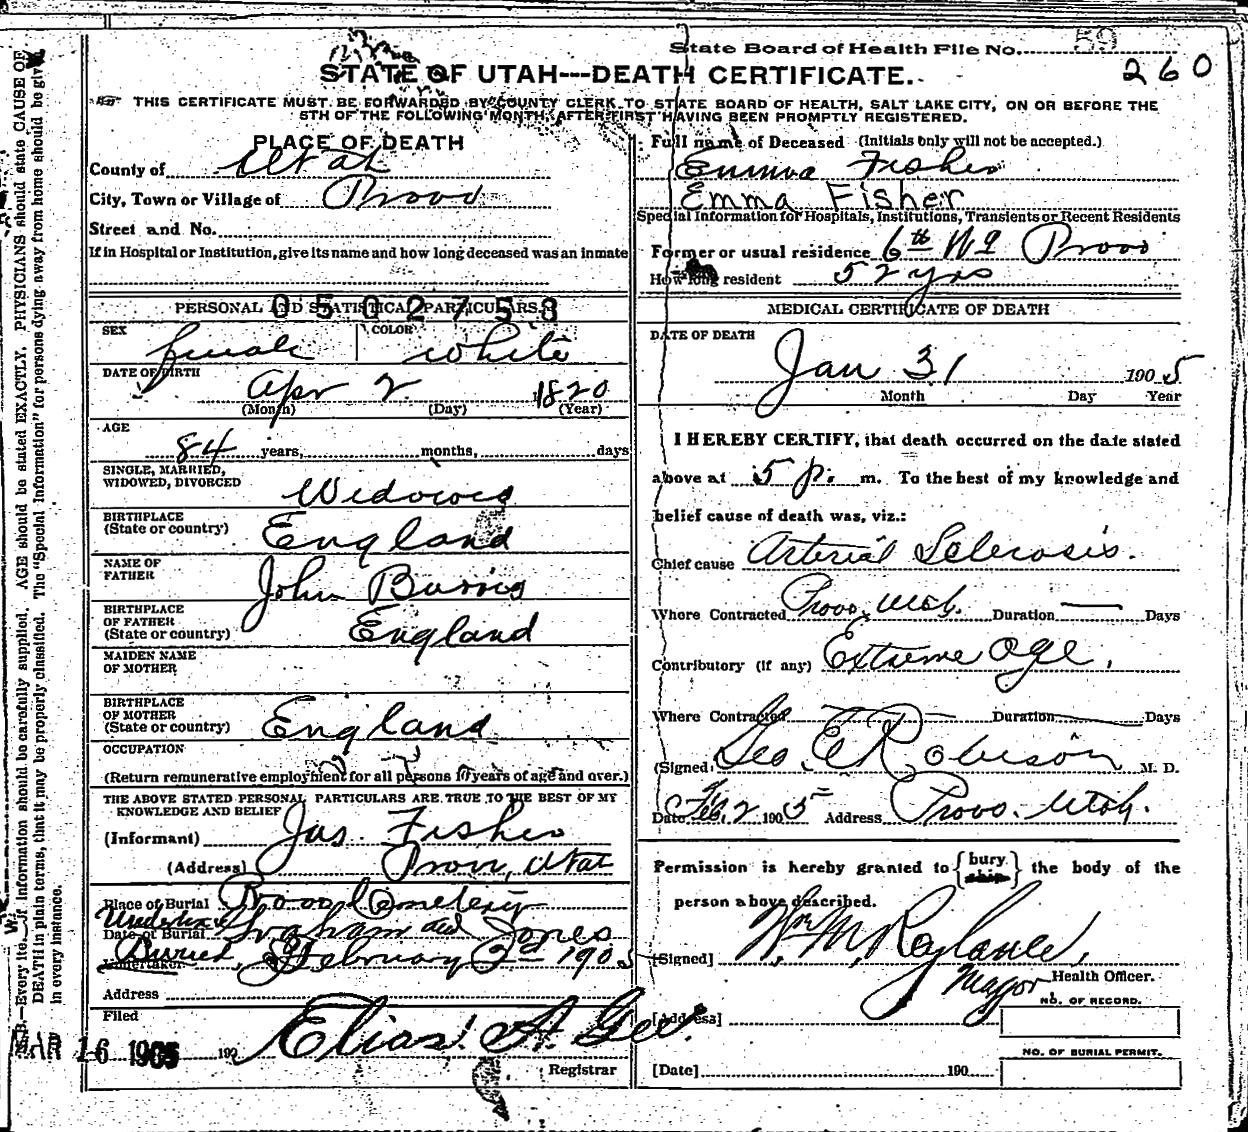 State Board of Health File No. 59
260
STATE OF UTAH---DEATH CERTIFICATE.
THIS CERTIFICATE MUST BE FORWARDED BY COUNTY CLERK TO STATE BOARD OF HEALTH, SALT LAKE CITY, ON OR BEFORE THE
5TH OF THE FOLLOWING MONTH, AFTER FIRST HAVING BEEN PROMPTLY REGISTERED.
PLACE OF DEATH
County of Utah
City, Town or Village of Provo
Street and No.
If in Hospital or Institution, give its name and how long deceased was an inmate
PERSONAL AND STATISTICAL PARTICULARS
0502758
SEX female
COLOR white
DATE OF BIRTH Apr 2 1820
(Month) (Day) (Year)
AGE
84 years, months, days
SINGLE, MARRIED,
WIDOWED, DIVORCED Widowed
BIRTHPLACE
(State or country) England
NAME OF
FATHER John
BIRTHPLACE
OF FATHER
(State or country) England
MAIDEN NAME
OF MOTHER
BIRTHPLACE
OF MOTHER
(State or country) England
OCCUPATION
(Return remunerative employment for all persons 10 years of age and over.)
THE ABOVE STATED PERSONAL PARTICULARS ARE TRUE TO THE BEST OF MY
KNOWLEDGE AND BELIEF
(Informant) Jas. Fisher
(Address) Provo, Utah
Place of Burial Provo Cemetery
Date of Burial Graham and Jones
Undertaker
Buried, February 2d 1905
Address
Filed
MAR 16 1905 190 Elias A. Gee.
Registrar
Full name of Deceased (Initials only will not be accepted.)
Emma Fisher
Emma Fisher
Special Information for Hospitals, Institutions, Transients or Recent Residents
Former or usual residence 6th Wd Provo
How long resident 52 yrs
MEDICAL CERTIFICATE OF DEATH
DATE OF DEATH
Jan 31 1905
Month Day Year
I HEREBY CERTIFY, that death occurred on the date stated
above at 5 p. m. To the best of my knowledge and
belief cause of death was, viz.:
Chief cause Arterial Sclerosis.
Where Contracted Provo, Utah. Duration — Days
Contributory (if any) Extreme Age,
Where Contracted — Duration — Days
(Signed) Geo. E. Robison M. D.
Date Feb. 2 1905 Address Provo. Utah.
Permission is hereby granted to {bury / ship} the body of the
person above described.
[Signed] Wm. M. Roylance,
Mayor Health Officer.
[Address]
NO. OF RECORD.
NO. OF BURIAL PERMIT.
[Date] 190
N.B.—Every item of information should be carefully supplied. AGE should be stated EXACTLY. PHYSICIANS should state CAUSE OF
DEATH in plain terms, that it may be properly classified. The "Special Information" for persons dying away from home should be given
in every instance.